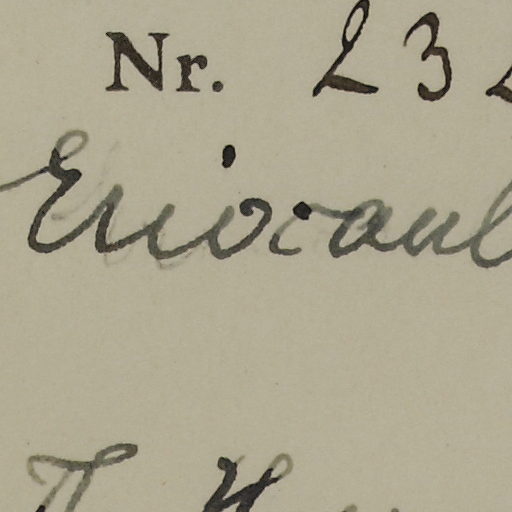 Nr. 232
Eriocaul